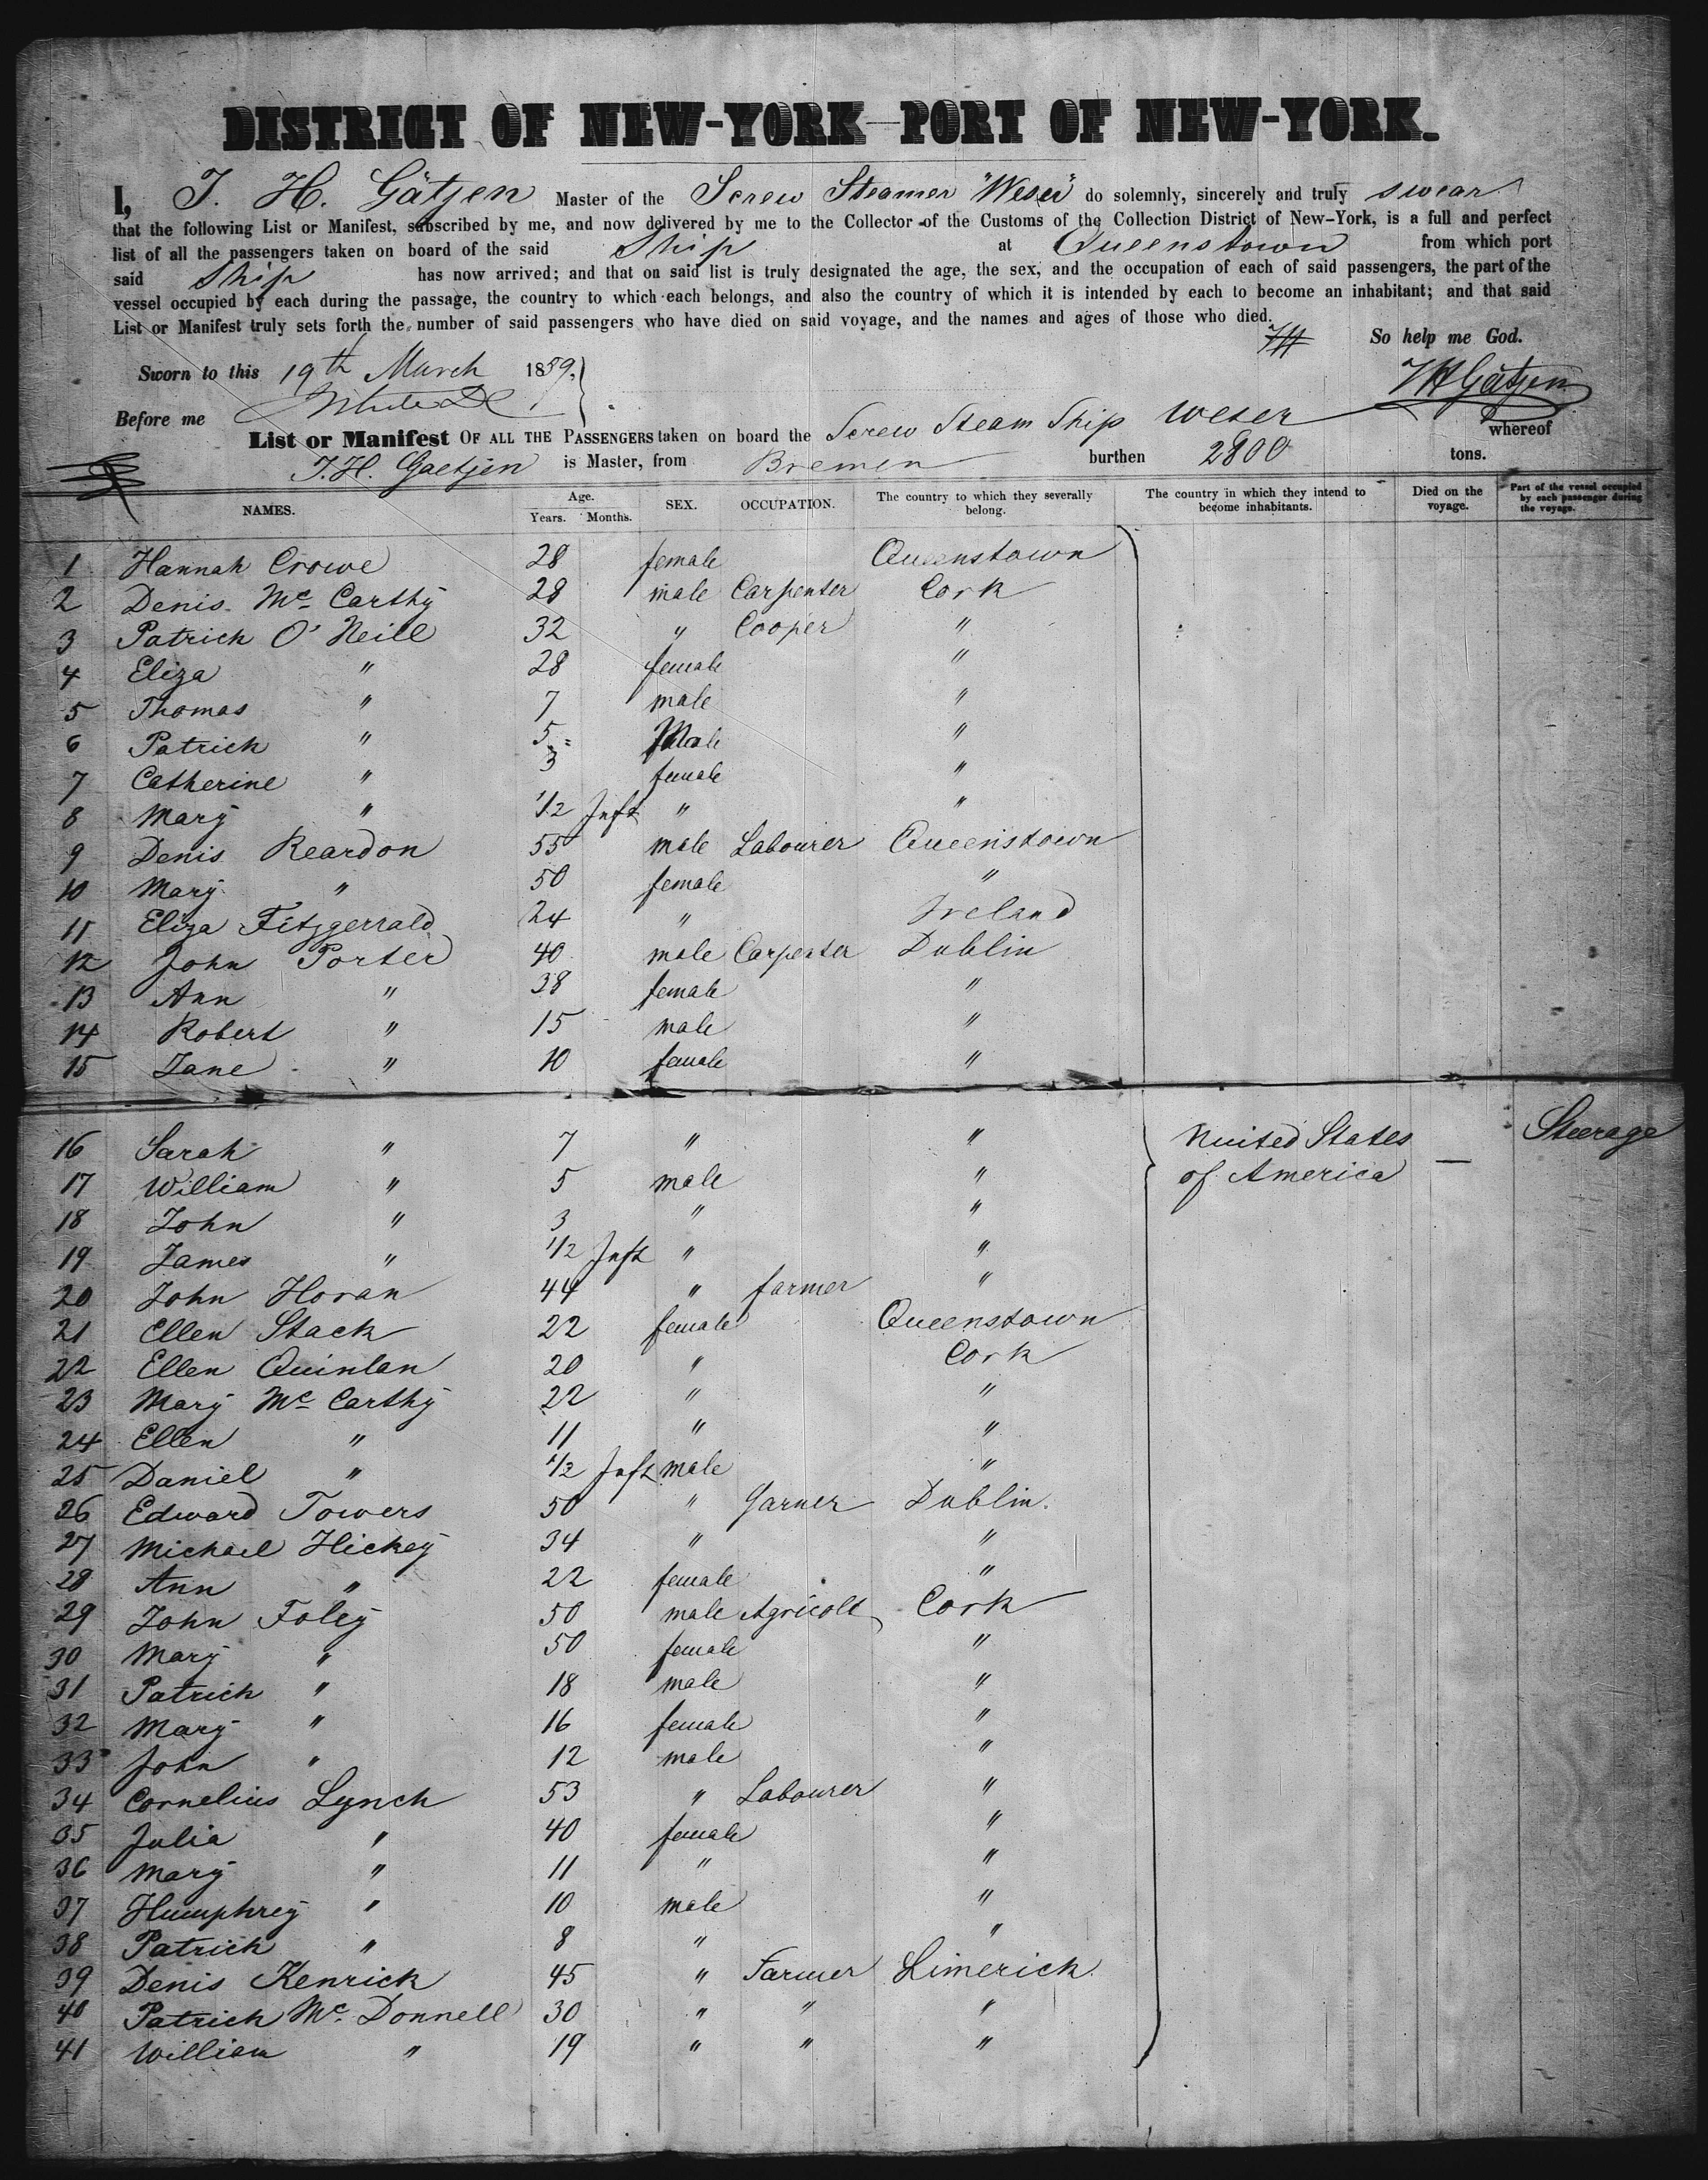 DISTRICT OF NEW-YORK—PORT OF NEW-YORK.
I, J. H. Gätjen Master of the Screw Steamer "Weser" do solemnly, sincerely and truly swear
that the following List or Manifest, subscribed by me, and now delivered by me to the Collector of the Customs of the Collection District of New-York, is a full and perfect
list of all the passengers taken on board of the said Ship at Queenstown from which port
said Ship has now arrived; and that on said list is truly designated the age, the sex, and the occupation of each of said passengers, the part of the
vessel occupied by each during the passage, the country to which each belongs, and also the country of which it is intended by each to become an inhabitant; and that said
List or Manifest truly sets forth the number of said passengers who have died on said voyage, and the names and ages of those who died.
So help me God.
Sworn to this 19th March 1859,
JHGätjen
Before me
List or Manifest OF ALL THE PASSENGERS taken on board the Screw Steam Ship Weser whereof
J.H. Gaetjen is Master, from Bremen burthen 2800 tons.
NAMES. Age. Years. Months. SEX. OCCUPATION. The country to which they severally belong. The country in which they intend to become inhabitants. Died on the voyage. Part of the vessel occupied by each passenger during the voyage.
1 Hannah Crowe 28 female Queenstown
2 Denis Mc Carthy 28 male Carpenter Cork
3 Patrick O'Neill 32 " Cooper "
4 Eliza " 28 female "
5 Thomas " 7 male "
6 Patrick " 5 Male "
7 Catherine " 3 female "
8 Mary " 1/2 Inft " "
9 Denis Reardon 55 male Labourer Queenstown
10 Mary " 50 female "
11 Eliza Fitzgerrald 24 " Ireland
12 John Porter 40 male Carpenter Dublin
13 Ann " 38 female "
14 Robert " 15 male "
15 Jane " 10 female "
16 Sarah " 7 " " United States — Steerage
17 William " 5 male " of America
18 John " 3 " "
19 James " 1/2 Inft " "
20 John Horan 44 " farmer "
21 Ellen Stack 22 female Queenstown
22 Ellen Quinlan 20 " Cork
23 Mary Mc Carthy 22 " "
24 Ellen " 11 " "
25 Daniel " 1/2 Inft male "
26 Edward Towers 50 " Dublin.
27 Michael Hickey 34 " "
28 Ann " 22 female "
29 John Foley 50 male Agricolt Cork
30 Mary " 50 female "
31 Patrick " 18 male "
32 Mary " 16 female "
33 John " 12 male "
34 Cornelius Lynch 53 " Labourer "
35 Julia " 40 female "
36 Mary " 11 " "
37 Humphrey " 10 male "
38 Patrick " 8 " "
39 Denis Kenrick 45 " Farmer Limerick
40 Patrick Mc Donnell 30 " " "
41 William " 19 " " "